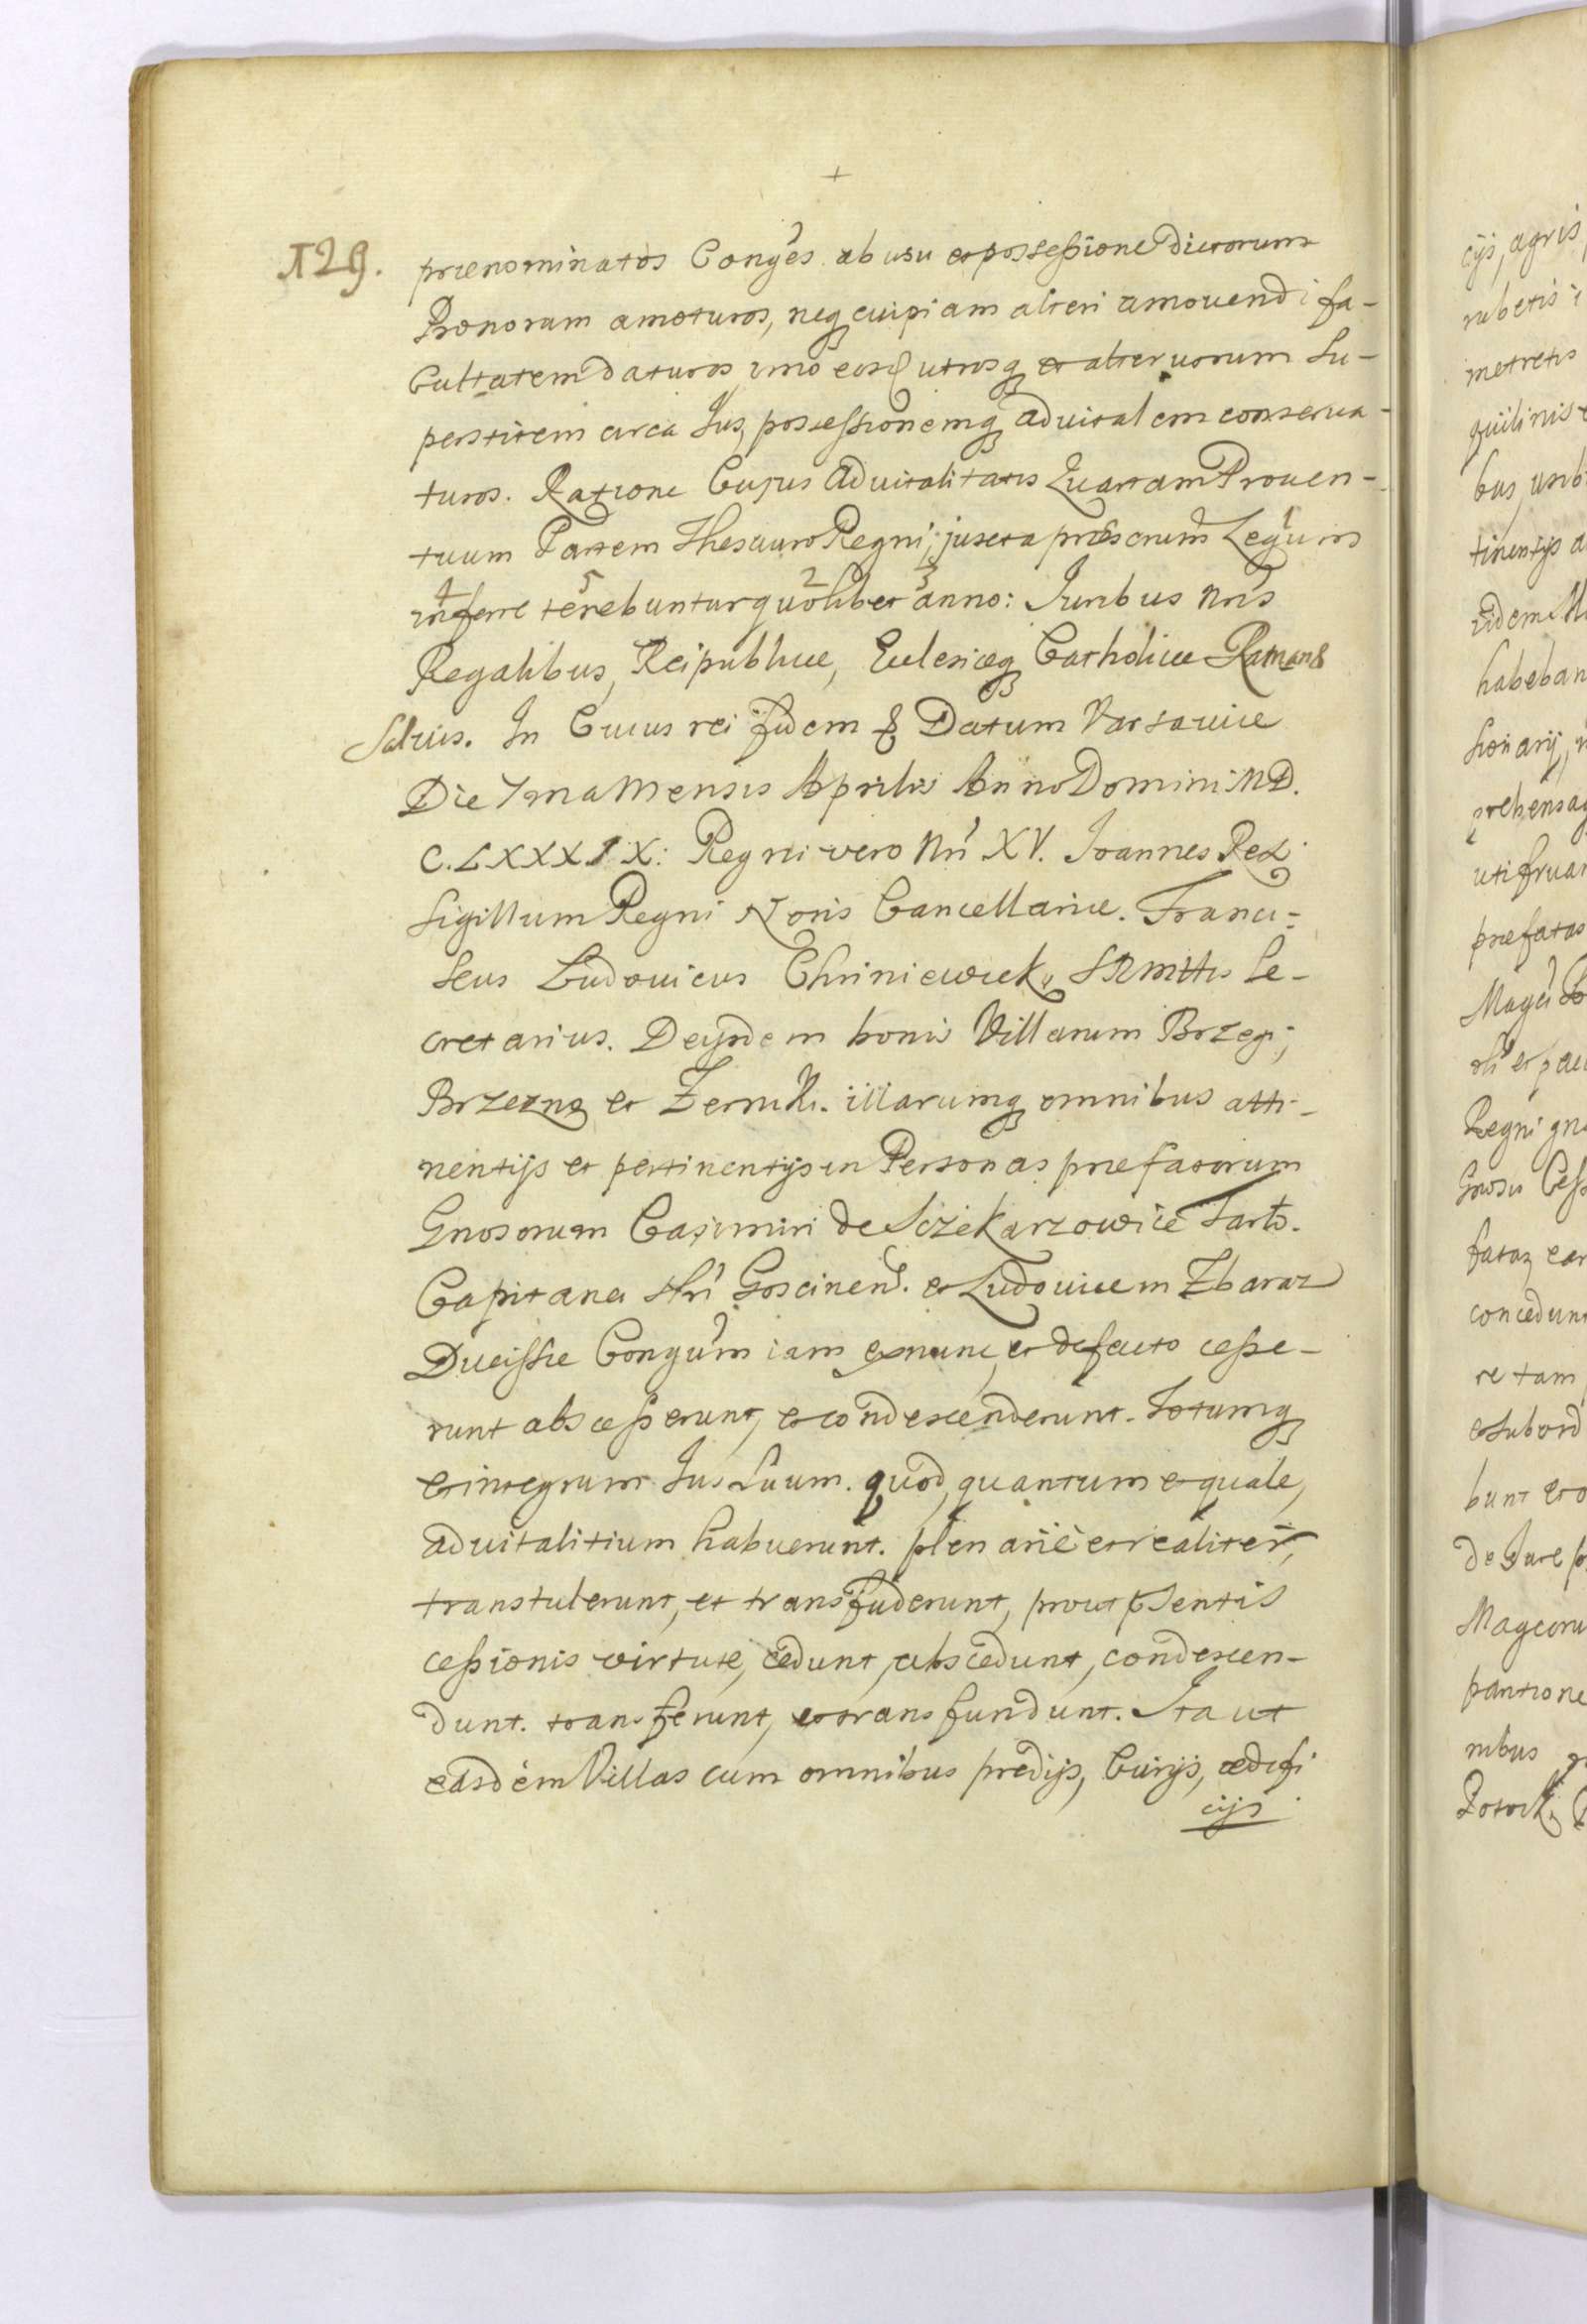 +
129.
prænominatos Conges ab usu et possessione dictorum
Bonorum amoturos, neq cuipiam alteri amovendi fa-
cultatem daturos, imo eosd utrosq et alter uorum Su-
perstitem circa Jus, possessionemq aduitalem conserua-
turos. Ratione Cujus Aduitalitatis Quartam Prouen-
tuum Partem Thesauro Regni, juxta præscrum Legum
inferre tenebuntur quolibet anno: Juribus nris
Regalibus, Reipublicæ, Ecclesiæq Catholicæ Roman
Salvis. In Cuius rei fidem & Datum Varsauiæ
Die 7ma Mensis Aprilis Anno Domini MD.
C.LXXXIX: Regni vero Nri XV. Joannes Rex
Sigillum Regni Noris Cancellariæ. Franci-
scus Ludouicus SRMttis Se-
cretarius. De ijsdem bonis Villarum Brzegi,
Brzezna et illarumq omnibus atti-
nentijs et pertinentijs in Personas præfatorum
Gnosorum Casimiri de Sczekarzowice Tarło.
Capitanei Goscinen. et Ludouicæ in Zbaraz
Ducissæ Congum iam exnunc, et defacto cesse-
runt abscesserunt, et condescenderunt. Totumq
et integrum Jus Suum. quod, quantum et quale,
aduitalitium habuerunt. plenarie et realiter,
transtulerunt, et transfuderunt, prout psentis
cessionis virtute, cedunt, abscedunt, condescen-
dunt. transferunt, et transfundunt. Ita ut
easdem Villas cum omnibus predijs, Curijs, ædifi
cijs
cijs, agris,
metretis
bus,
tinentijs
habeban
prefatas
Regni
concedunt
re tam
bunt et
de Jure
nibus